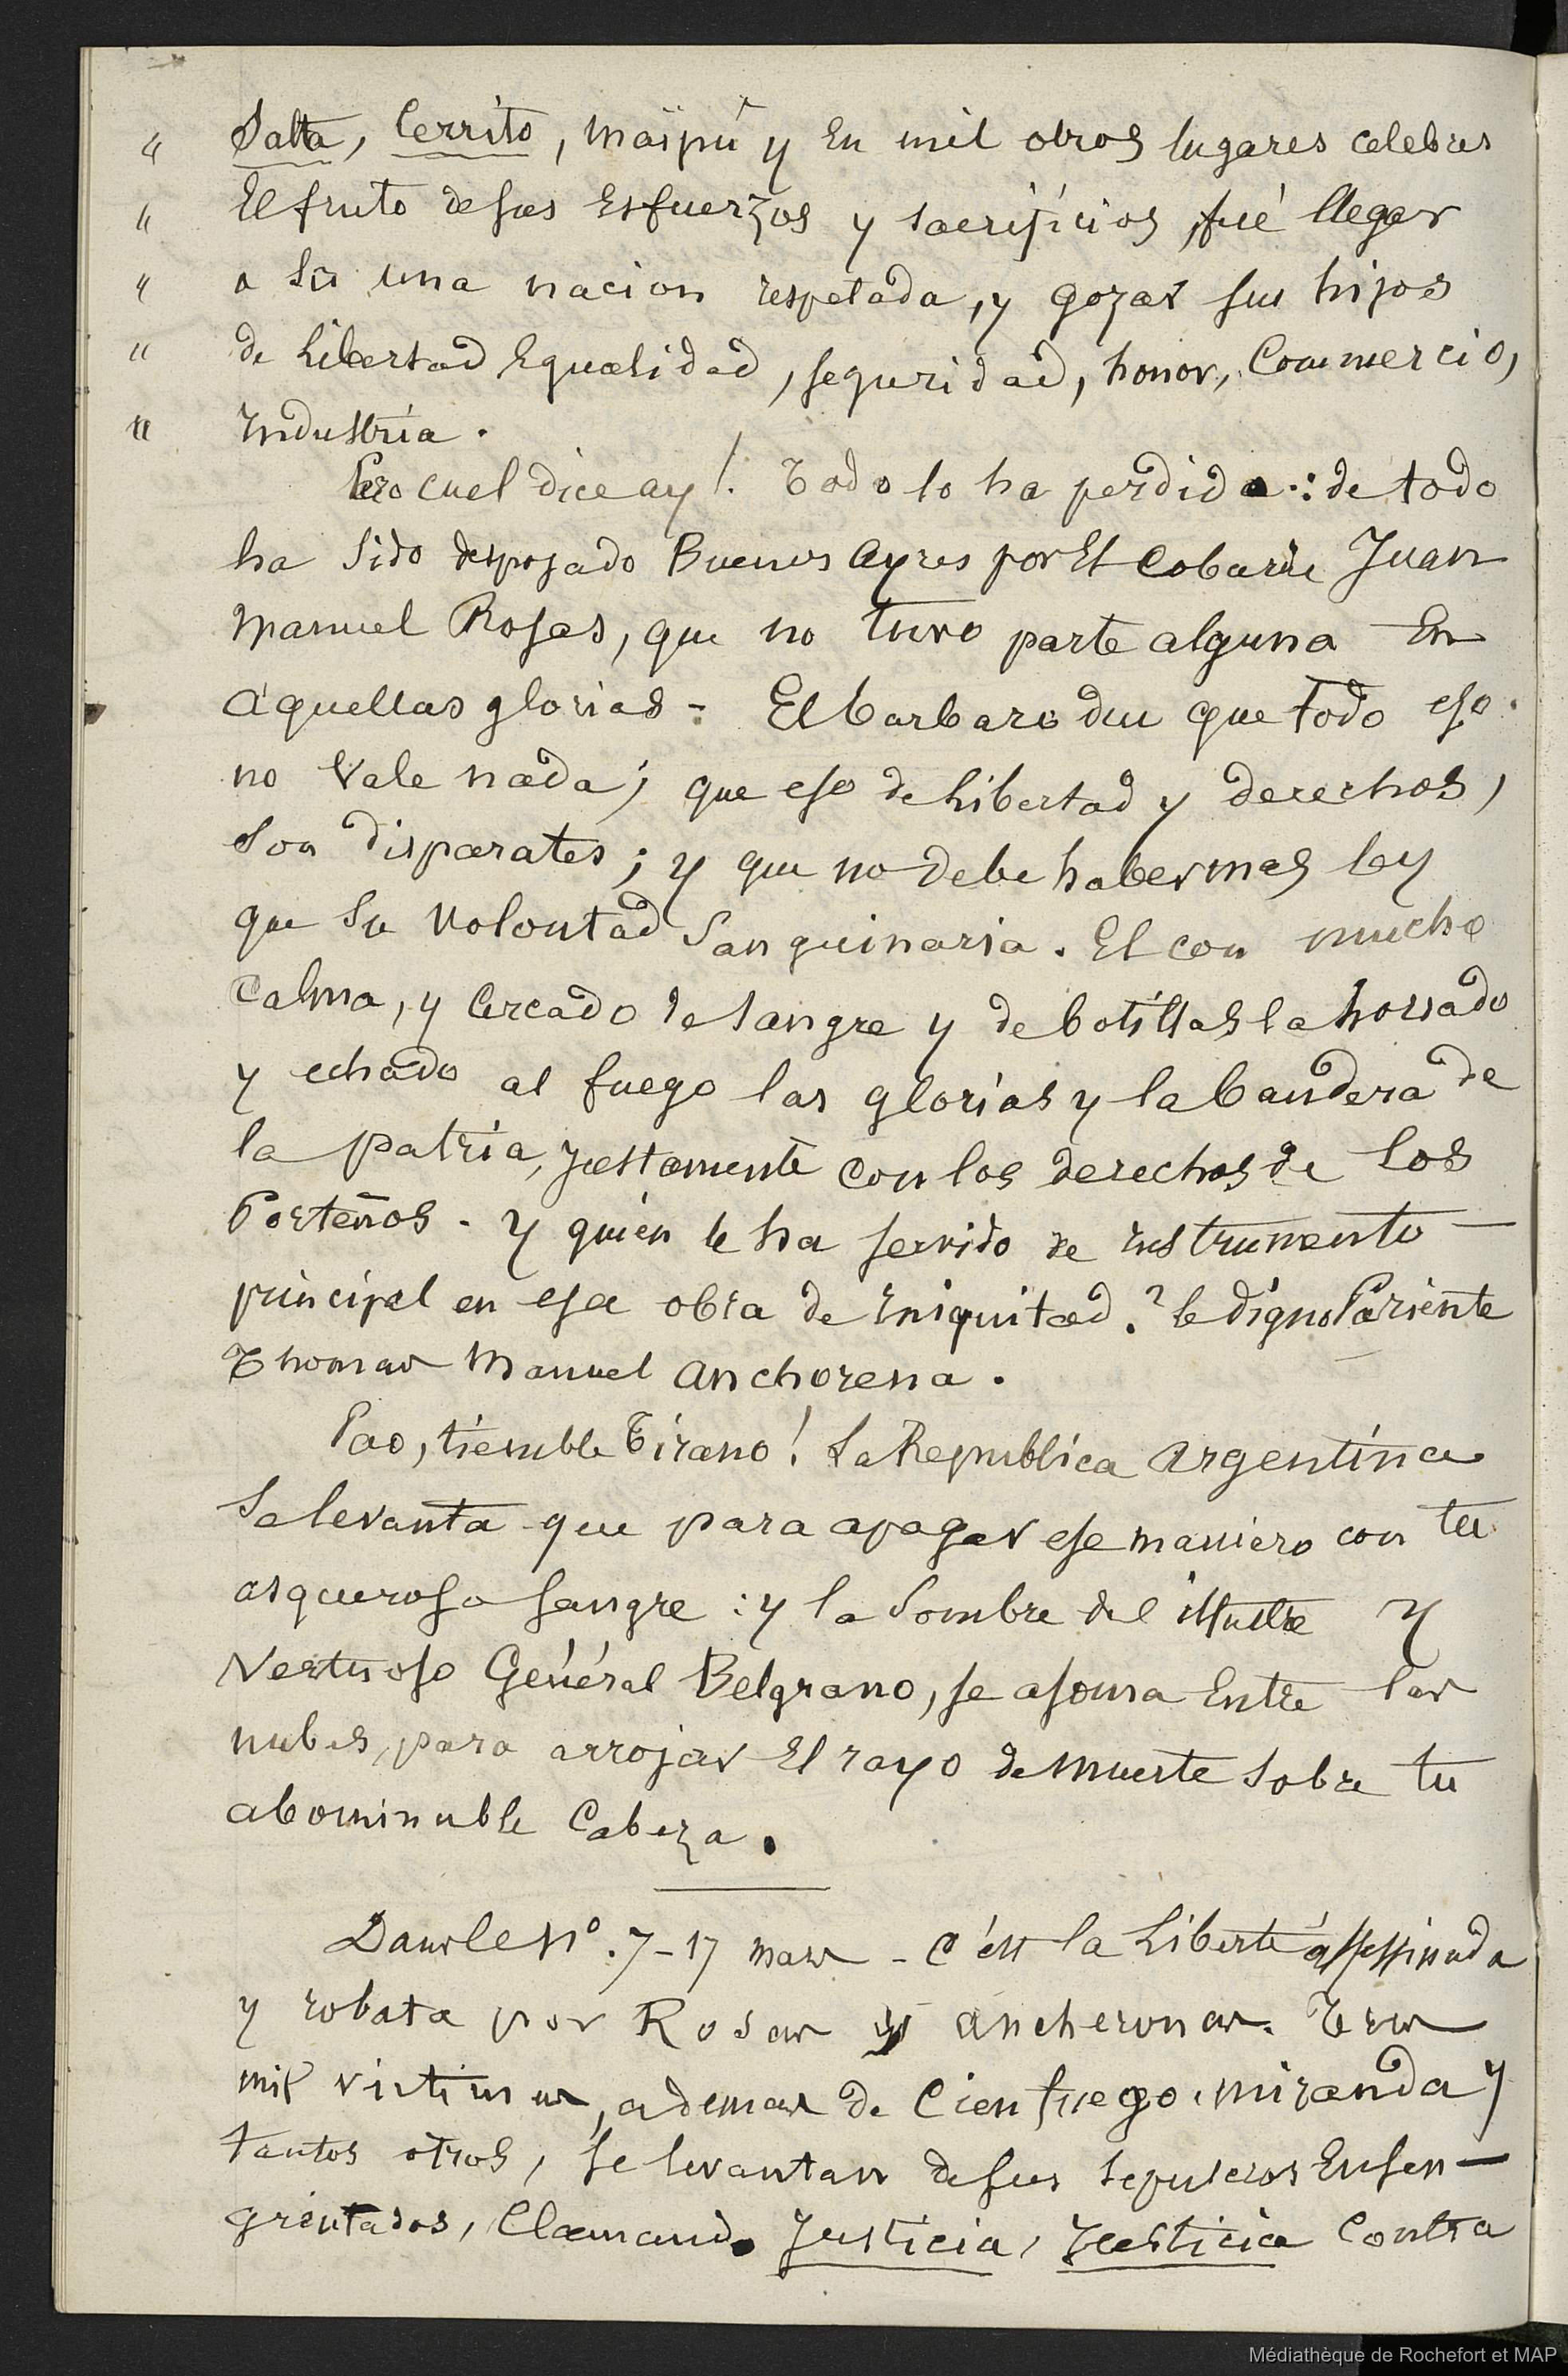 " Salta, Cerrito, Maïpú y En mil otros lugares celebres
" El fruto de sus Esfuerzos y sacrificios, fué llegar
" a Ser una nacion respetada, y gozar sus hijos
" de Libertad Equalidad, seguridad, honor, Commercio,
" Industria.
Pero cuel dice ay! Todo lo ha perdido: de todo
ha Sido despojado Buenos Ayres por El Cobarde Juan
Manuel Rosas, que no tuvo parte alguna En
aquellas glorias - El barbaro que todo eso
no Vale nada; que eso de Libertad y derechos,
Son disparates; y que no debe haber mas ley
que Su Volontad Sanguinaria. El con mucho
Calma, y Cercado de sangre y de botillas la horrado
y echado al fuego las glorias y la bandera de
la patria, justamente con los derechos de los
Porteños. y quien le ha servido de instrumento
principal en esa obra de iniquitad? le digno Pariente
Thomas Manuel Anchorena.
Pao, tiemble Tirano! La Republica Argentina
Se levanta que para apagar ese maniero con tu
asquerosa sangre: y la Sombre del illustre y
Vertuoso Général Belgrano, se asoma Entre las
nubes, para arrojar El rayo de muerte sobre tu
abominable Cabeza.
Dans le No. 7 - 17 mars - C'est la Liberté assessinada
y robata por Rosas y Ancheronas. Tres
mil victimas, ademas de Cienfuego, Miranda y
tantos otros, Se levantan de sus sepulcros Ensen-
grientados, Clamando Justicia, Justicia Contra
Médiathèque de Rochefort et MAP